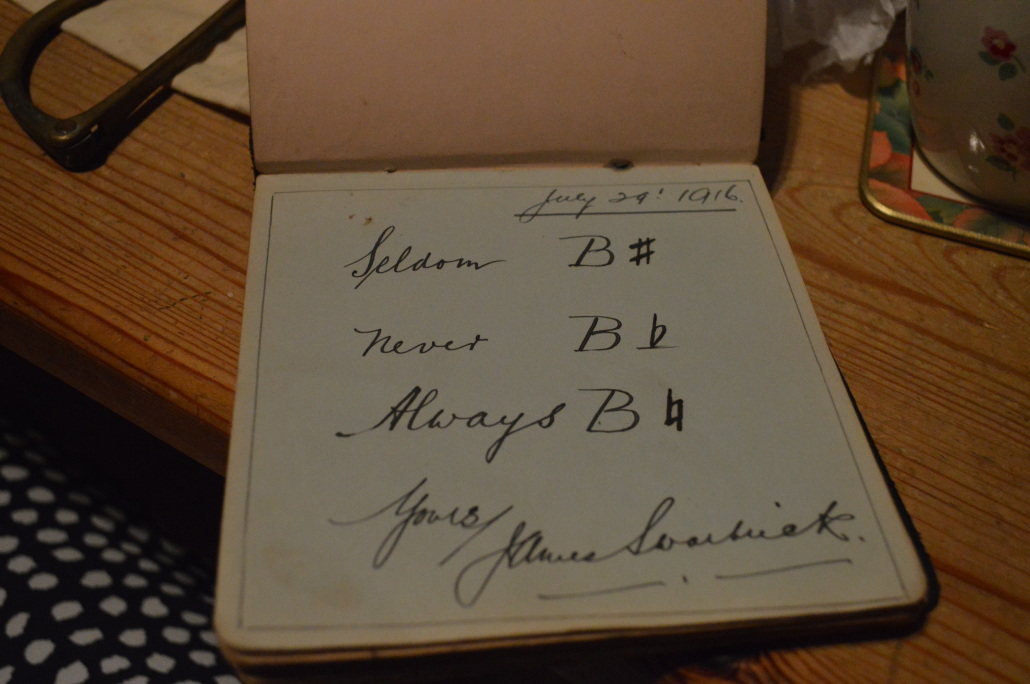 July 29' 1916.
Seldom B♯
never B♭
Always B♮
Yours/
James Swarbrick.